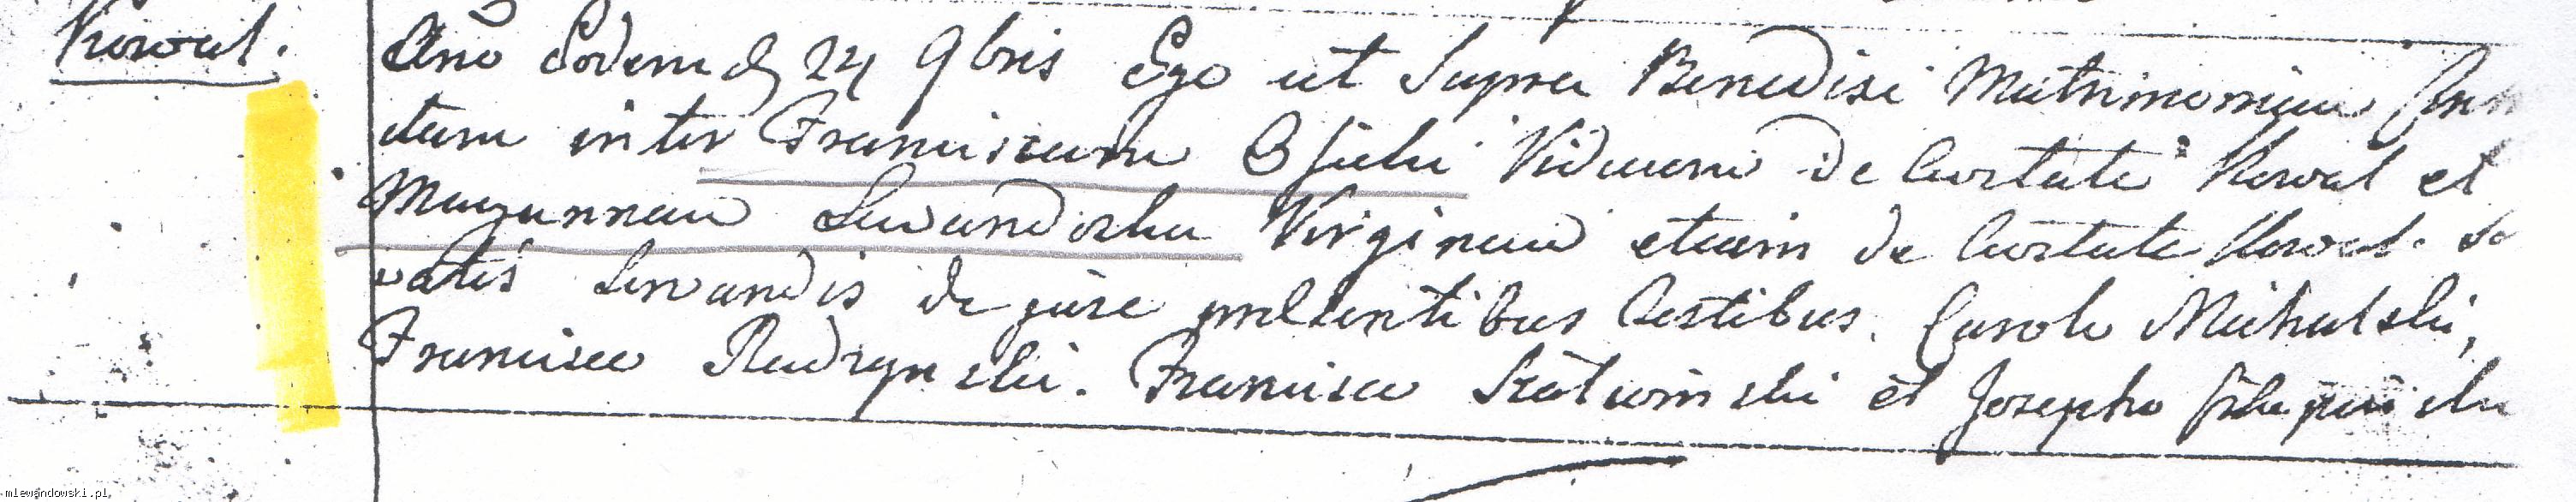 Kowal.
Ano Eodem d 24 9bris Ego ut Supra Benedixi Matrimonium
ctum inter Franciscum Viduum de Civitate Kowal et
Maryannam Lewandoska Virginem etiam de Civitate Kowal. Se
vatis servandis de jure presentibus Testibus. Carolo Michalski,
Francisco Radzynski. Francisco et Josepho
mlewandowski.pl